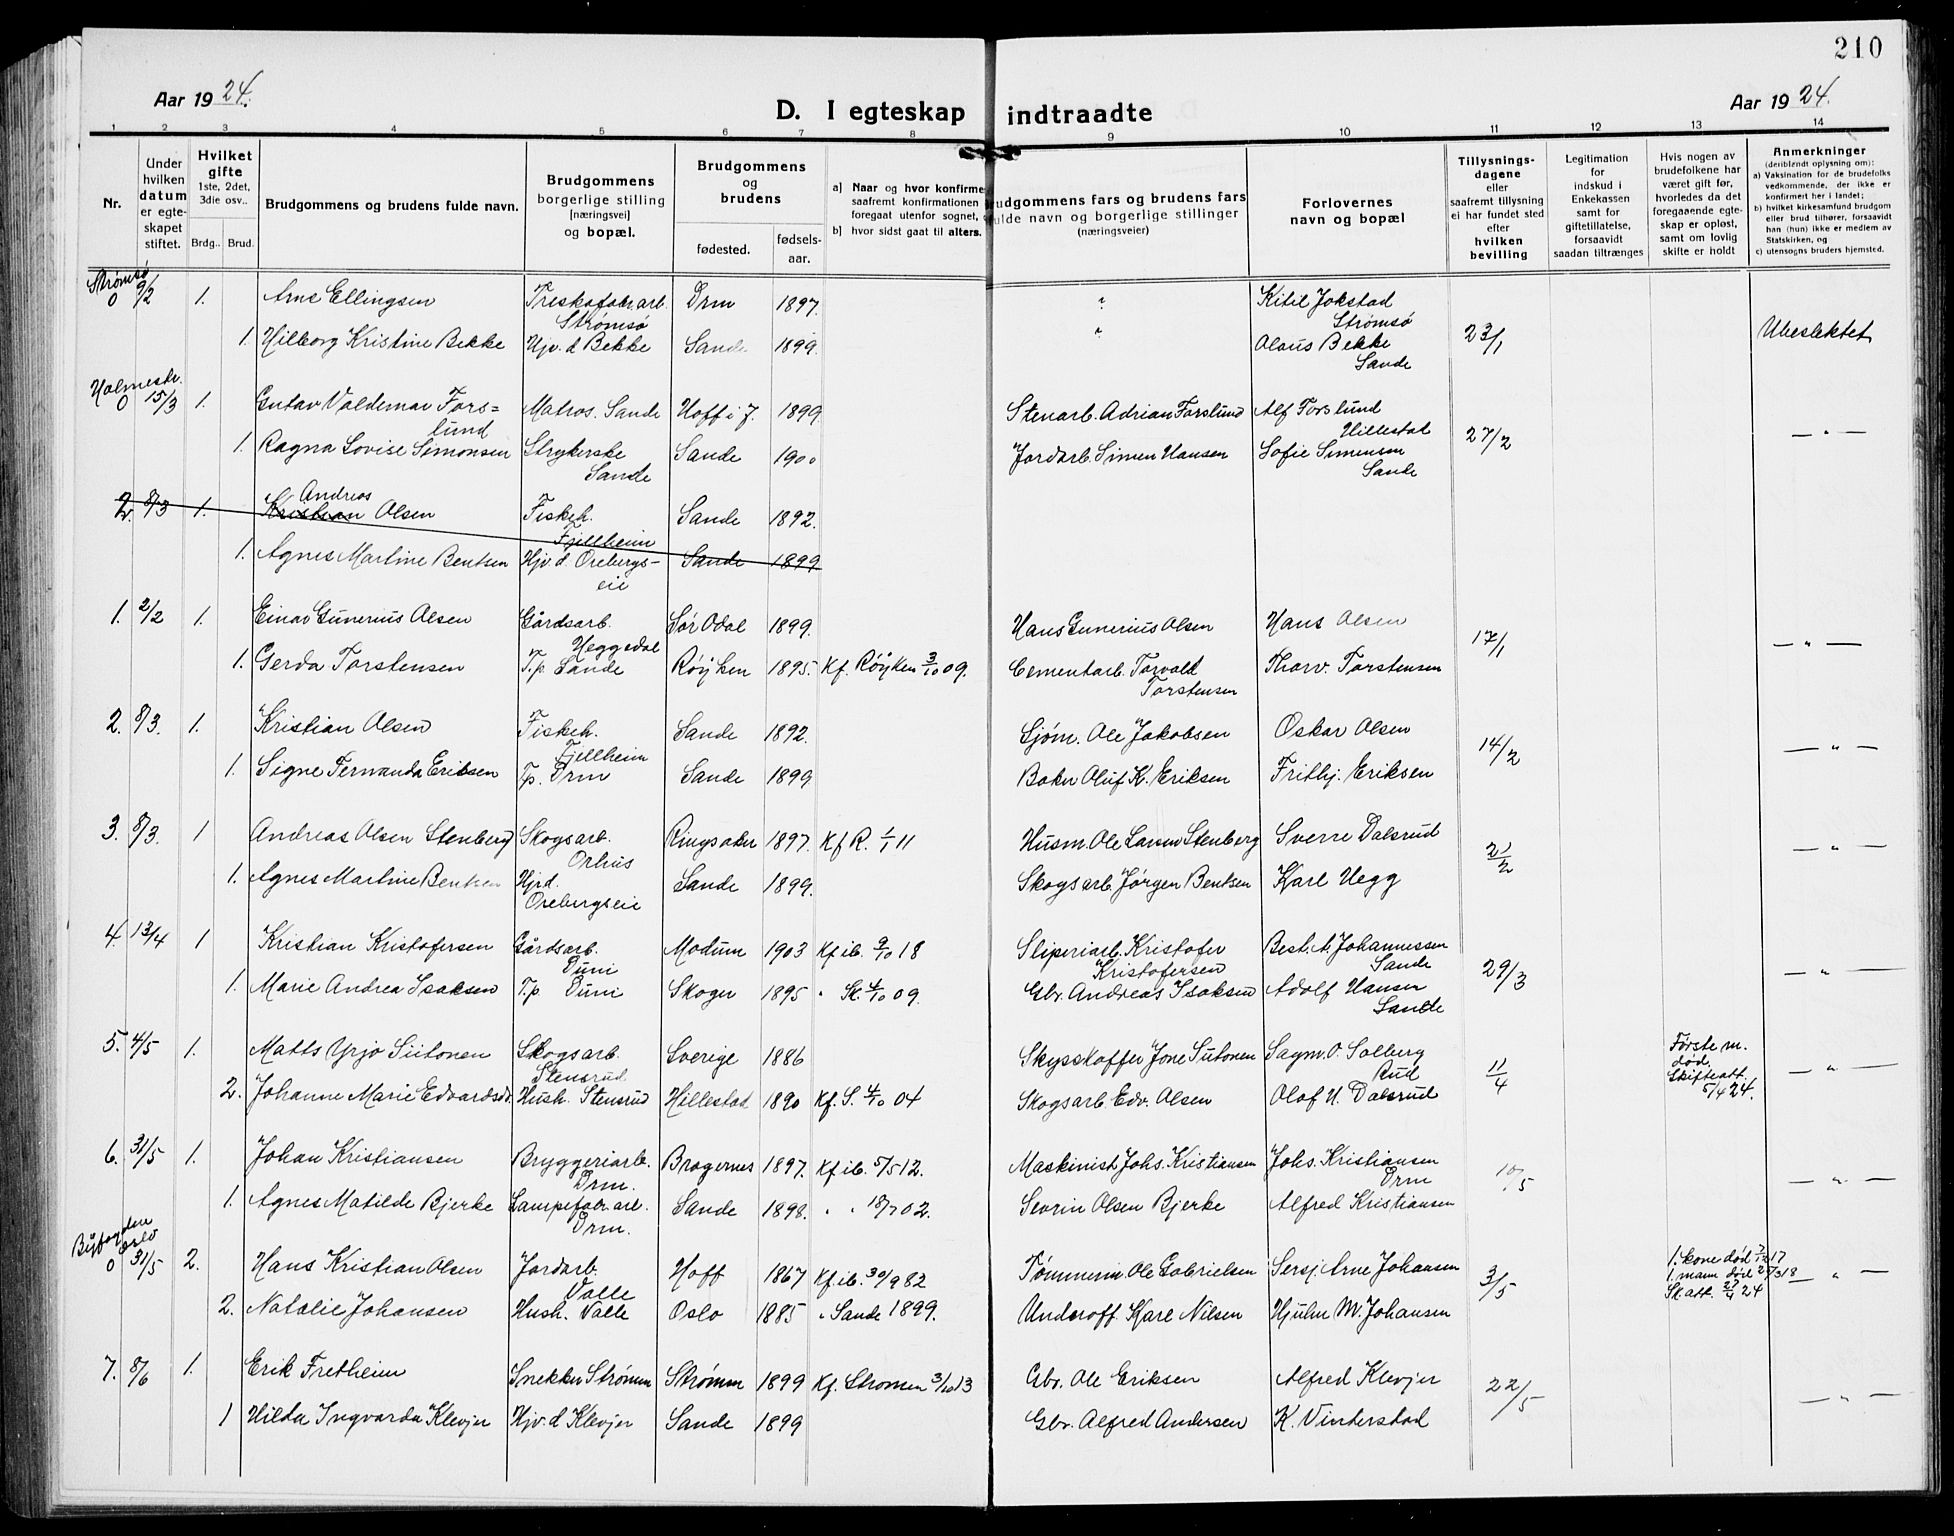 210
Aar 1924.
D. I egteskap indtraadte
Aar 1924.
1 2 3 4 5 6 7 8 9 10 11 12 13 14
Nr.
Under hvilken datum er egteskapet stiftet.
Hvilket gifte 1ste, 2det, 3die osv..
Brdg.. Brud.
Brudgommens og brudens fulde navn.
Brudgommens borgerlige stilling (næringsvei) og bopæl.
Brudgommens og brudens
fødested.
fødselsaar.
a) Naar og hvor konfirme
saafremt konfirmationen
foregaat utenfor sognet,
b) hvor sidst gaat til alters.
udgommens fars og brudens fars
ulde navn og borgerlige stillinger
(næringsveier)
Forlovernes navn og bopæl
Tillysningsdagene eller saafremt tillysning ei har fundet sted efter hvilken bevilling
Legitimation for indskud i Enkekassen samt for giftetillatelse, forsaavidt saadan tiltrænges
Hvis nogen av brudefolkene har været gift før, hvorledes da det foregaaende egteskap er opløst, samt om lovlig skifte er holdt
Anmerkninger
(deriblendt oplysning om):
a) Vaksination for de brudefolks vedkommende, der ikke er konfirmert her i landet;
b) hvilket kirkesamfund brudgom eller brud tilhører, forsaavidt han (hun) ikke er medlem av Statskirken, og
c) utensogns bruders hjemsted.
Strømsø
0 9/2 1. Arne Ellingsen Treskofabr.arb. Strømsø Drm 1897. " Kitil Jokstad Strømsø
1. Hilborg Kristine Bekke Hjv. d Bekke Sande 1899. " Olaus Bekke Sande 23/1 Ubeslektet
Holmestr.
0 15/3 1. Gustav Valdemar Forslund Matros. Sande Hoff i J. 1899 Stenarb. Adrian Forslund Alf Forslund Hillestad
1. Ragna Lovise Simonsen Strykerske Sande Sande 1900 Jordarb. Simen Hansen Sofie Simensen Sande 27/2 — " —
2. 8/3 1. Kristian Andreas Olsen Fiskeh. Fjellheim Sande 1892.
1. Agnes Martine Bentsen Hjv. d. Orebergseie Sande 1899
1. 2/2 1. Einar Gunerius Olsen Gårdsarb. Heggsdal Sør Odal 1899. Hans Gunerius Olsen Hans Olsen
1. Gerda Torstensen T.p. Sande Røyken 1895. Kf. Røyken 3/10 09. Cementarb. Torvald Torstensen Thorv. Torstensen 17/1 — " —
2. 8/3. 1. Kristian Olsen Fiskeh. Fjellheim Sande 1892. Sjøm. Ole Jakobsen Oskar Olsen
1. Signe Fernanda Eriksen Tp. Drm Sande 1899 Baker Oluf K. Eriksen Frithj. Eriksen 14/2 — " —
3. 8/3. 1 Andreas Olsen Stenberg Skogsarb. Orhus Ringsaker 1897. Kf R. 1/1 11 Husm. Ole Larsen Stenberg Sverre Dalsrud
1. Agnes Martine Bentsen Hjvd. Orebergseie Sande 1899. Skogsarb. Jørgen Bentsen Karl Hegg 21/2 — " —
4. 13/4 1 Kristian Kristofersen Gårdsarb. Duni Modum 1903 Kf ib. 9/10 18 Sliperiarb. Kristofer Kristofersen Best. A. Johannessen Sande
1. Marie Andrea Isaksen T.p. Duni Skoger 1895 " Sk. 4/10 09. Gbr. Andreas Isaksen Adolf Hansen Sande 29/3 — " —
5. 4/5 1. Matts Yrjø Siitonen Skogsarb. Stensrud Sverige 1886 Skysskaffer Jone Sutonen Sagm. O. Solberg Rud
2. Johanne Marie Edvardsd. Hush. Stensrud Hillestad 1890 Kf. S. 4/10 04 Skogsarb. Edv. Olsen Olaf H. Dalsrud 11/4 Første m. død Skifteatt. 5/4 24. — " —
6. 31/5 1. Johan Kristiansen Bryggeriarb. Drm. Bragernes 1897. Kf ib. 5/5 12. Maskinist Johs. Kristiansen Johs. Kristiansen Drm
1. Agnes Matilde Bjerke Lampefabr.arb. Drm. Sande 1898. " " 18/7 02. Severin Olsen Bjerke Alfred Kristiansen 10/5 — " —
Byfogden Oslo
0 31/5 2. Hans Kristian Olsen Jordarb. Valle Hoff 1867 Kf ib. 30/9 82 Tømmerm. Ole Gabrielsen Sersj. Arne Johansen
2. Natalie Johansen Hush. Valle Oslo 1885 " Sande 1899. Underoff. Karl Nilsen Hjulm M. Johansen 3/5 1. kone død 7/12 17 1. mann død 27/3 18 Sk att. 27/4 24 — " —
7. 8/6 1. Erik Fretheim Snekker Strømm Strømm 1899 Kf. Strømm 3/10 13 Gbr. Ole Eriksen Alfred Klevjer
1 Hilda Ingvarda Klevjer Hjv. d Klevjer Sande 1899 Gbr. Alfred Andersen K. Vinterstad 22/5 — " —